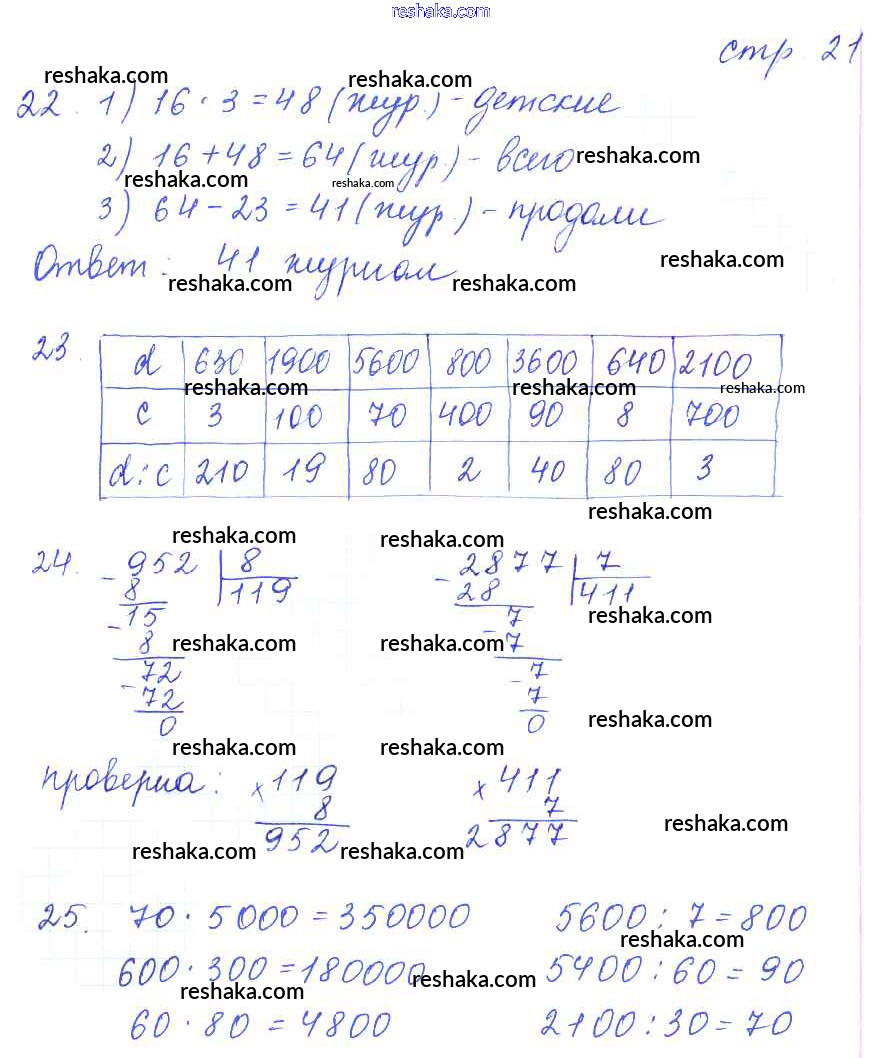 reshaka.com
стр. 21
reshaka.com reshaka.com
22. 1) 16 · 3 = 48 (жур.) - детские
2) 16 + 48 = 64 (жур.) - всего reshaka.com
reshaka.com reshaka.com
3) 64 - 23 = 41 (жур.) - продали
Ответ: 41 журнал reshaka.com
reshaka.com reshaka.com
23. d 630 1900 5600 800 3600 640 2100
reshaka.com reshaka.com reshaka.com
c 3 100 70 400 90 8 700
d : c 210 19 80 2 40 80 3
reshaka.com
reshaka.com reshaka.com
24. - 952 8 - 2877 7
8 119 28 411
- 15 7
8 - 7
reshaka.com reshaka.com reshaka.com
72 7
- 72 - 7
0 0
reshaka.com
reshaka.com reshaka.com
проверка: x 119 x 411
8 7
952 2877
reshaka.com
reshaka.com reshaka.com
25. 70 · 5000 = 350000 5600 : 7 = 800
reshaka.com
600 · 300 = 180000 5400 : 60 = 90
reshaka.com reshaka.com
60 · 80 = 4800 2100 : 30 = 70